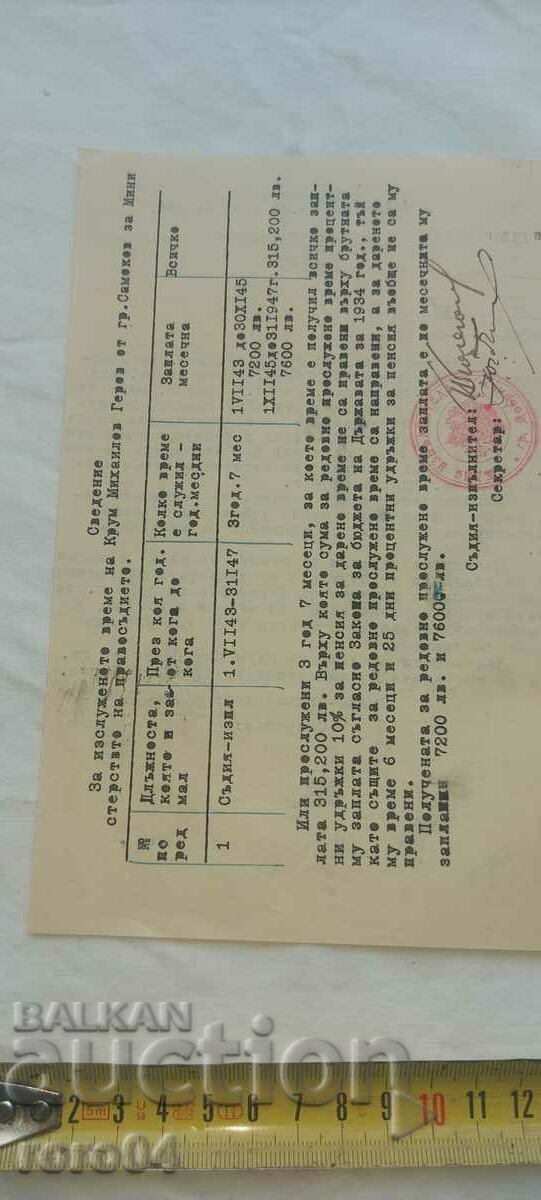 Сведение
За изслуженото време на Крум Михаилов Геров от гр.Самоков за Мини
стерство на правосъдието.
№ по ред | Длъжноста, която и зае мал | През коя год. от кога до кога | Колко време е служил - год.месдни | Заплата месечна | Всичко
1 | Съдия-изпл | 1.VII43-31I47 | 3год.7 мес | 1VII43 до30XI45 7200 лв. 1XII45до31I1947г. 7600 лв. | 315,200 лв.
Или прослужени 3 год 7 месеци, за което време е получил всичко зап-
лата 315,200 лв. Върху която сума за редовно прослужено време процент-
ни удръжки 10% за пенсия за дарено време не са правени върху брутната
му заплата съгласно Закона за бюджета на Държавата за 1934 год., тъй
като същите за редовно прослужено време са направени, а за дареното
му време 6 месеци и 25 дни процентни удръжки за пенсия въобще не са му
правени.
Получената за редовно прослужено време заплата е по месечната му
заплания 7200 лв. и 7600 лв.
Съдия-изпълнител:
Секретар:
BALKAN
auction
retro04
2 5m 3 4 5 6 7 8 9 10 11 12